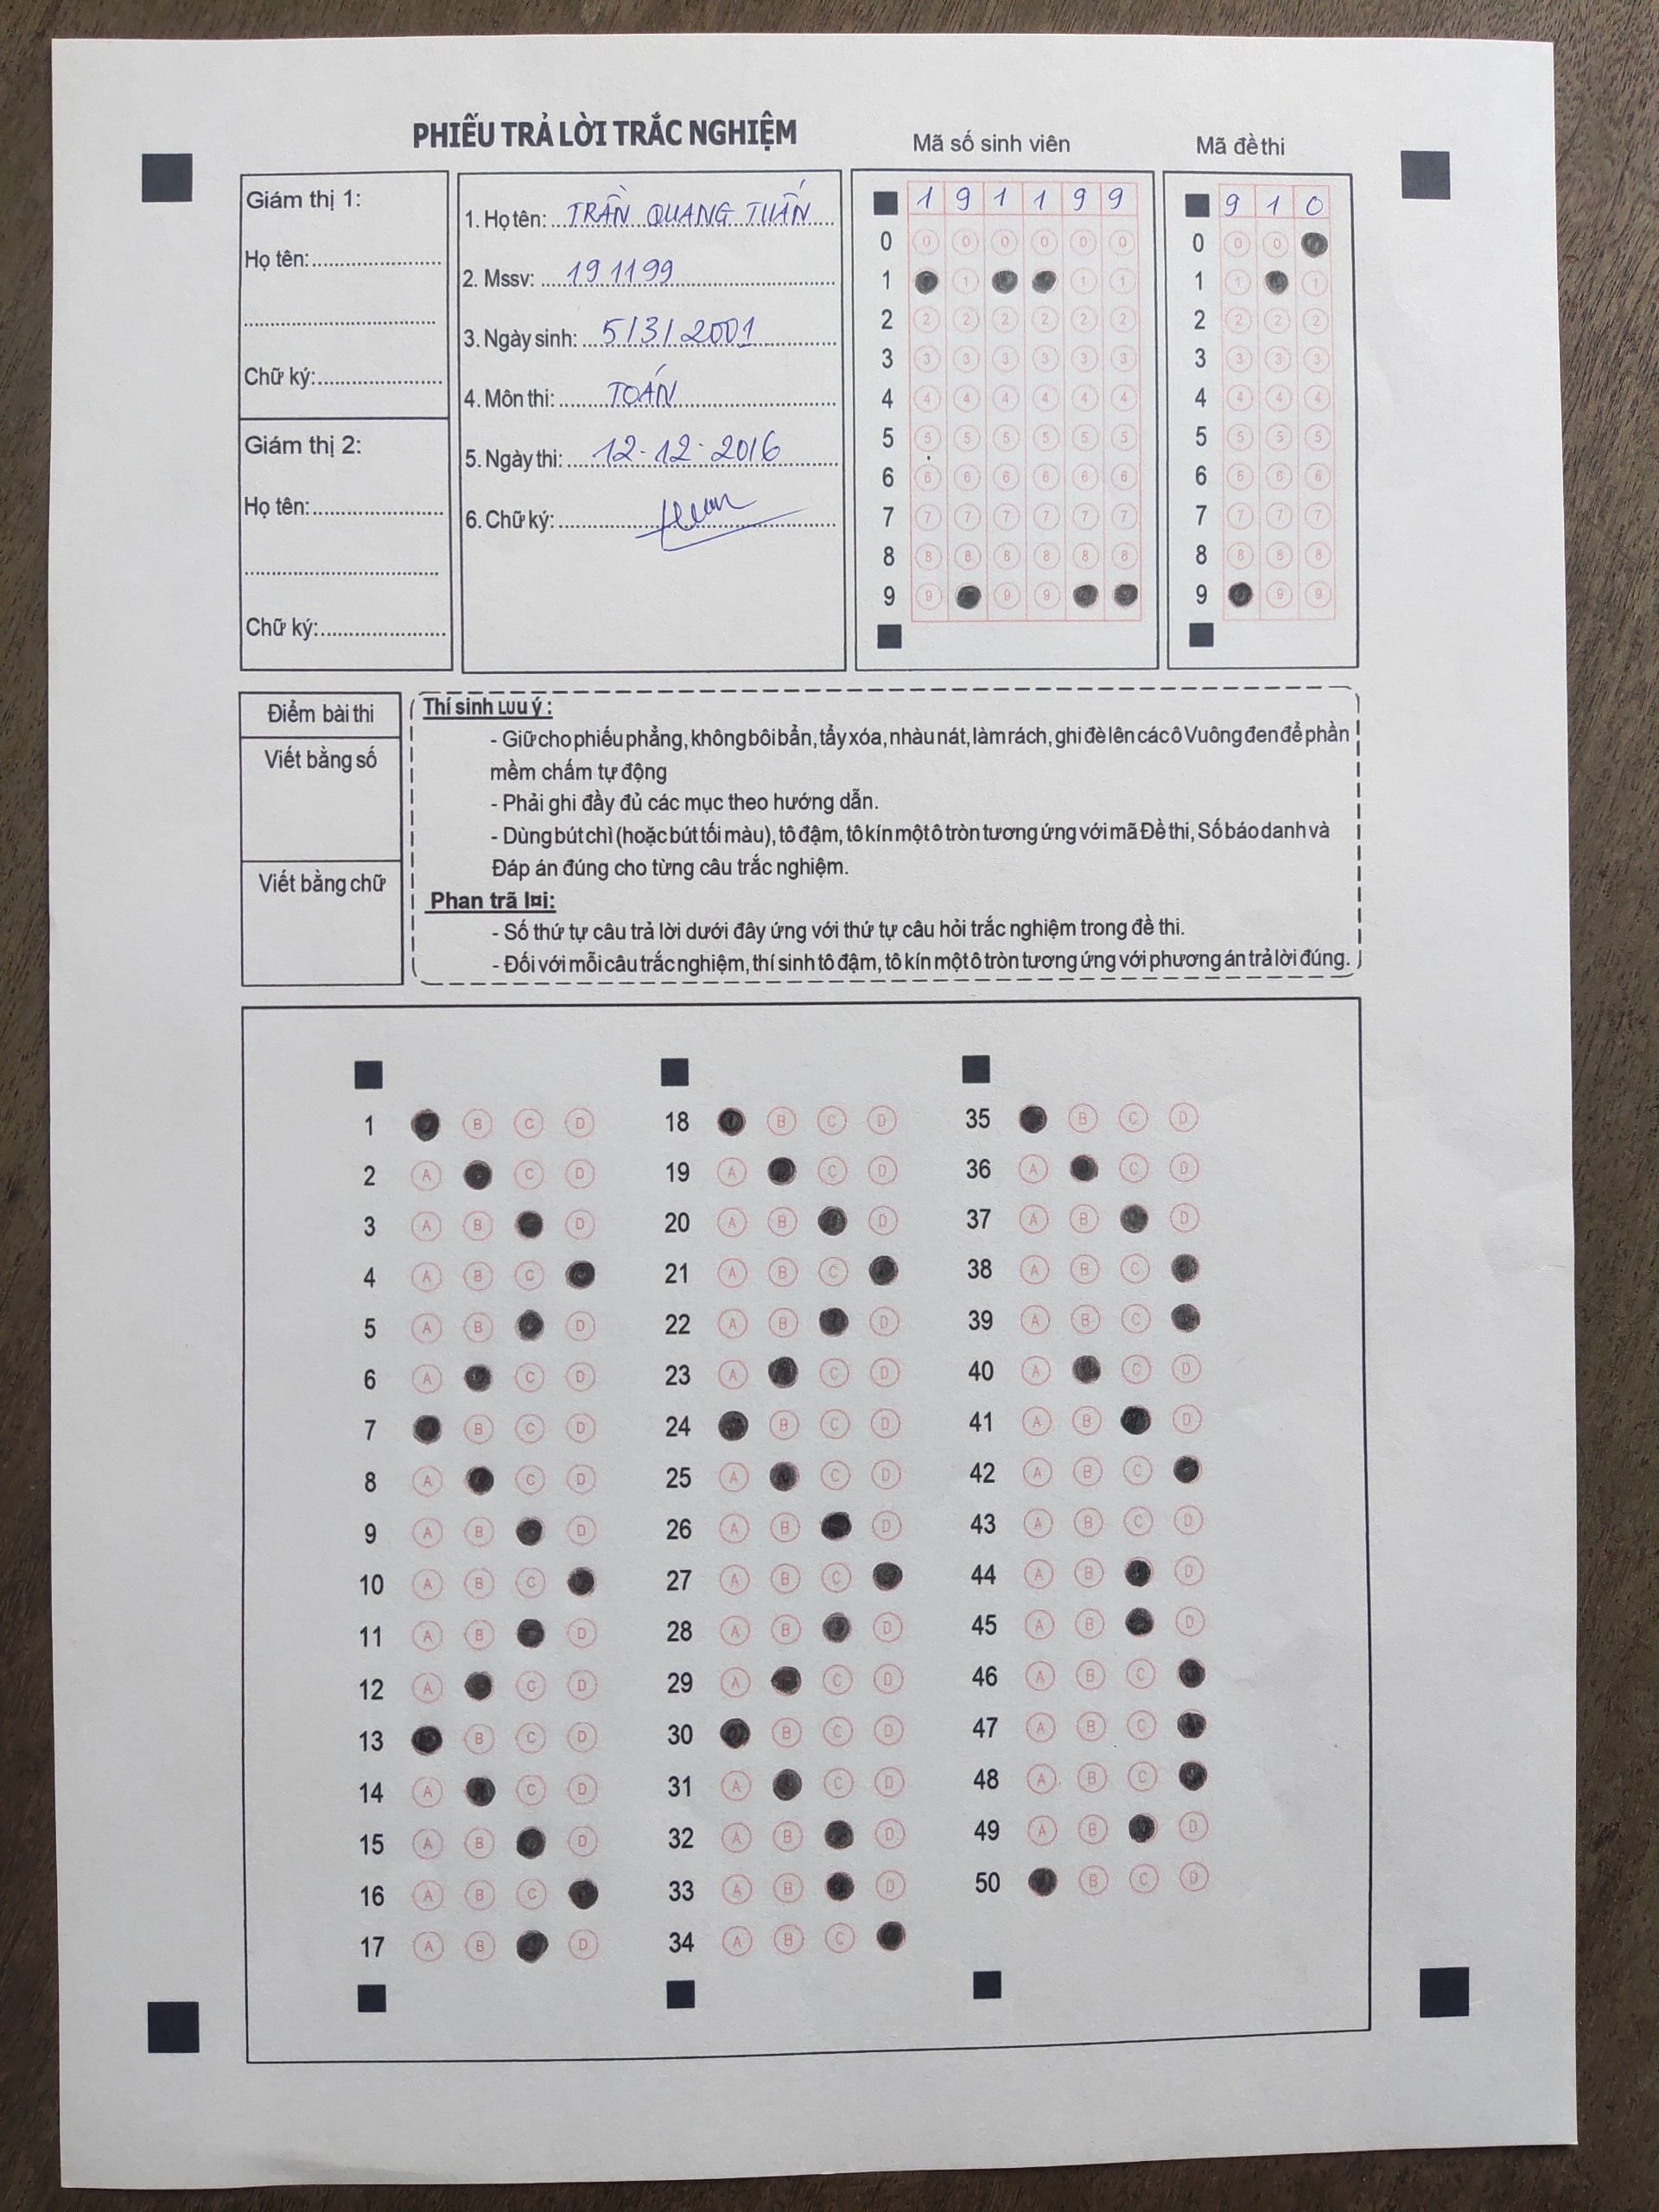 PHIẾU TRẢ LỜI TRẮC NGHIỆM
Mã số sinh viên
Mã đề thi
Giám thị 1:
Họ tên:
Chữ ký:
Giám thị 2:
Họ tên:
Chữ ký:
1. Họ tên: TRẦN QUANG TUẤN
2. Mssv: 191199
3. Ngày sinh: 5/3/2001
4. Môn thi: TOÁN
5. Ngày thi: 12-12-2016
6. Chữ ký:
1 9 1 1 9 9
0 0 0 0 0 0 0
1 1 1 1
2 2 2 2 2 2 2
3 3 3 3 3 3 3
4 4 4 4 4 4 4
5 5 5 5 5 5 5
6 6 6 6 6 6 6
7 7 7 7 7 7 7
8 8 8 8 8 8 8
9 9 9 9
9 1 0
0 0 0
1 1 1
2 2 2 2
3 3 3 3
4 4 4 4
5 5 5 5
6 6 6 6
7 7 7 7
8 8 8 8
9 9 9
Điểm bài thi
Viết bằng số
Viết bằng chữ
Thí sinh Lưu ý :
- Giữ cho phiếu phẳng, không bôi bẩn, tẩy xóa, nhàu nát, làm rách, ghi đè lên các ô Vuông đen để phần
mềm chấm tự động
- Phải ghi đầy đủ các mục theo hướng dẫn.
- Dùng bút chì (hoặc bút tối màu), tô đậm, tô kín một ô tròn tương ứng với mã Đề thi, Số báo danh và
Đáp án đúng cho từng câu trắc nghiệm.
Phan trã l¤i:
- Số thứ tự câu trả lời dưới đây ứng với thứ tự câu hỏi trắc nghiệm trong đề thi.
- Đối với mỗi câu trắc nghiệm, thí sinh tô đậm, tô kín một ô tròn tương ứng với phương án trả lời đúng.
1 B C D
2 A C D
3 A B D
4 A B C
5 A B D
6 A C D
7 B C D
8 A C D
9 A B D
10 A B C
11 A B D
12 A C D
13 B C D
14 A C D
15 A B D
16 A B C
17 A B D
18 B C D
19 A C D
20 A B D
21 A B C
22 A B D
23 A C D
24 B C D
25 A C D
26 A B D
27 A B C
28 A B D
29 A C D
30 B C D
31 A C D
32 A B D
33 A B D
34 A B C
35 B C D
36 A C D
37 A B D
38 A B C
39 A B C
40 A C D
41 A B D
42 A B C
43 A B C D
44 A B D
45 A B D
46 A B C
47 A B C
48 A B C
49 A B D
50 B C D